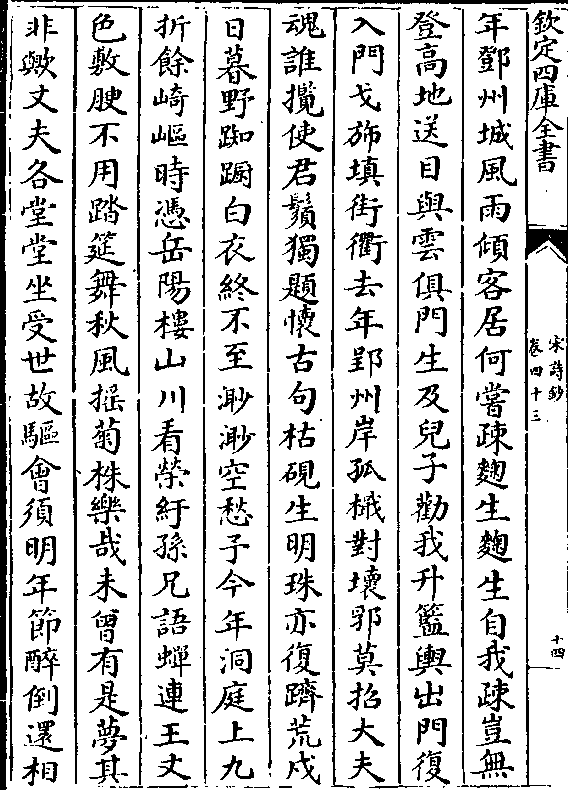 欽定四庫全書
宋詩鈔
卷四十三
十四
年鄧州城風雨傾客居何嘗疎麴生麴生自我疎豈無
登高地送目與雲俱門生及兒子勸我升籃輿出門復
入門戈斾填街衢去年郢州岸孤檝對壞郛莫招大夫
魂誰攬使君鬚獨題懷古句枯硯生明珠亦復躋荒戍
日暮野踟蹰白衣終不至渺渺空愁予今年洞庭上九
折餘崎嶇時憑岳陽樓山川看縈紆孫兄語蟬連王丈
色敷腴不用踏筵舞秋風摇菊株樂哉未曾有是夢其
非歟丈夫各堂堂坐受世故驅會須明年節醉倒還相